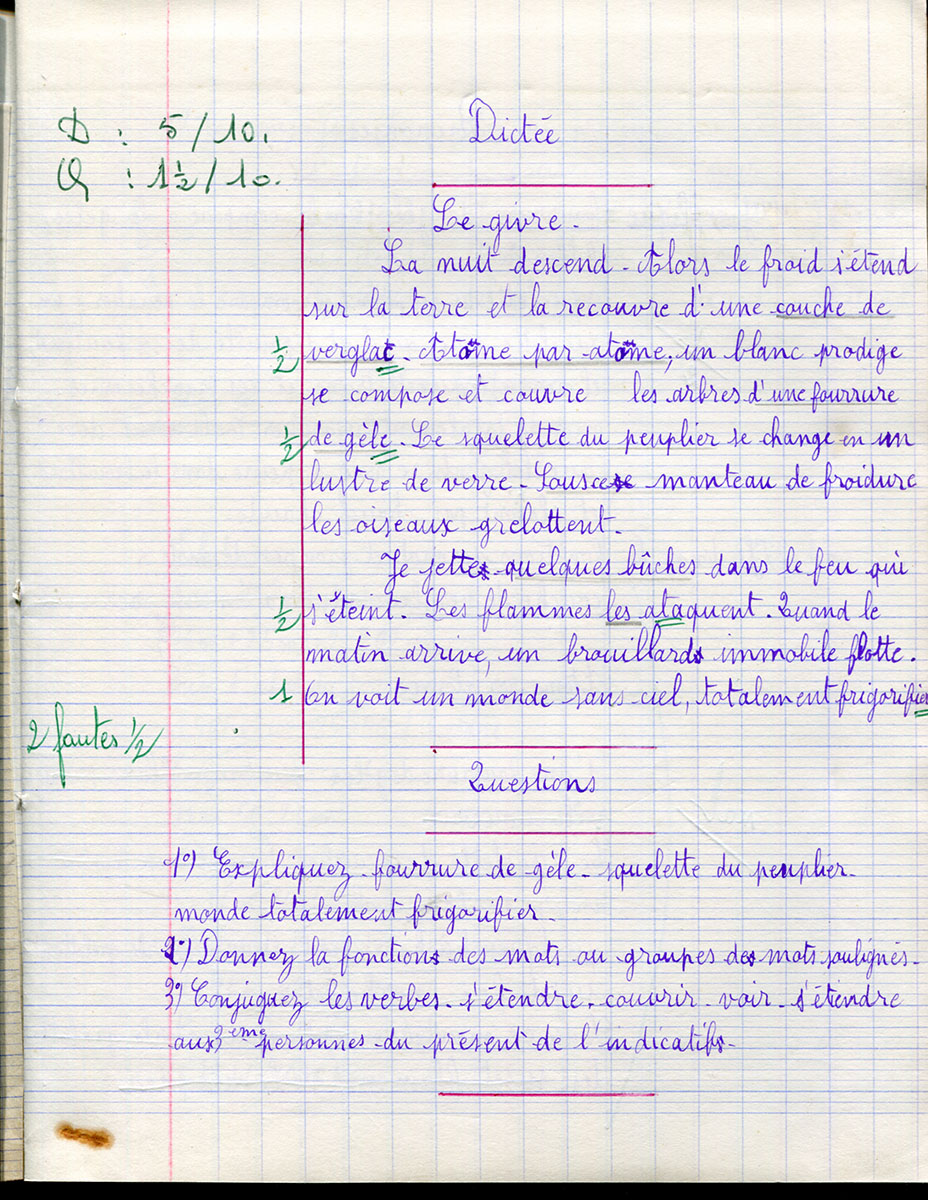 D : 5/10.
Dictée
Q : 1½/10.
Le givre.
La nuit descend. Alors le froid s'étend
sur la terre et la recouvre d'une couche de
½ verglac. Atome par atome, un blanc prodige
se compose et couvre les arbres d'une fourrure
½ de gèle. Le squelette du peuplier se change en un
lustre de verre. Sous ce manteau de froidure
les oiseaux grelottent.
Je jette quelques bûches dans le feu qui
½ s'éteint. Les flammes les ataquent. Quand le
matin arrive, un brouillard immobile flotte.
1 On voit un monde sans ciel, totalement frigorifier
2 fautes ½
Questions
1°) Expliquez fourrure de gèle - squelette du peuplier -
monde totalement frigorifier.
2°) Donnez la fonction des mots ou groupes de mots soulignés.
3°) Conjuguez les verbes - s'étendre - couvrir - voir - s'étendre
aux 3ème personnes du présent de l'indicatif.